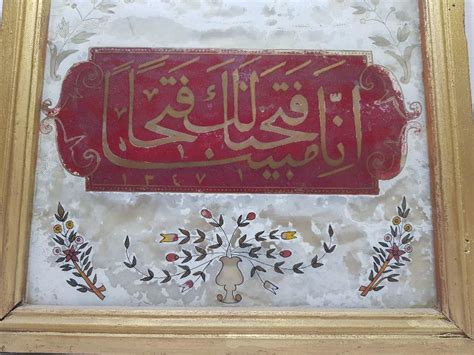 اِنَّا فَتَحْنَا لَكَ فَتْحًا
مُبِينًا